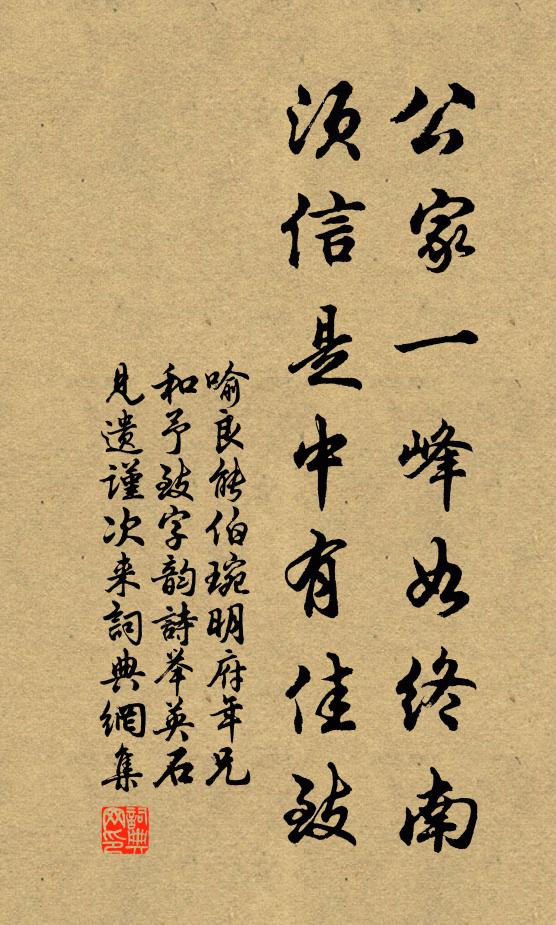 公家一峰如终南
须信是中有佳致
喻良能伯琬明府年兄
和予致字韵詩举英石
见遗谨次来詞典網集
詞典网印